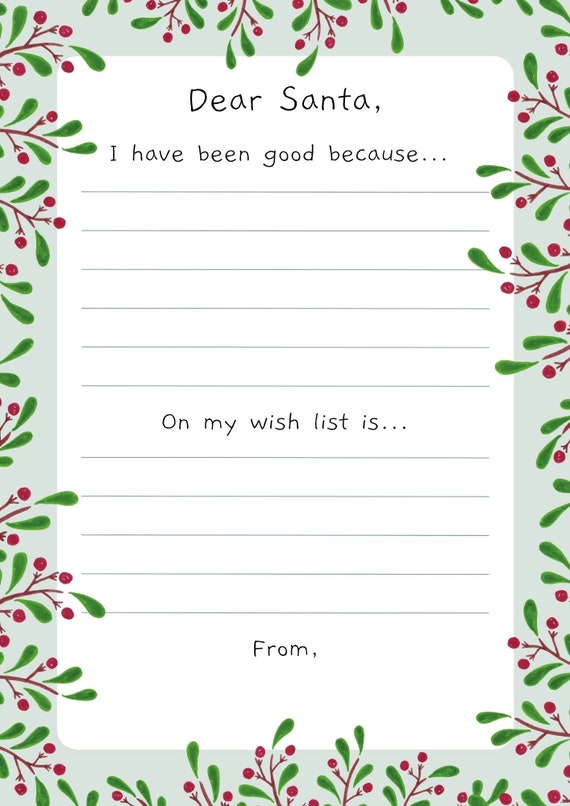 Dear Santa,
I have been good because...
On my wish list is...
From,